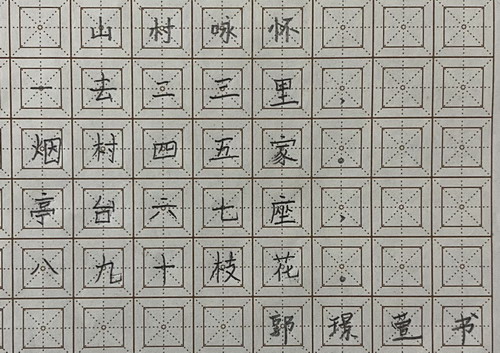 山村咏怀
一去二三里，
烟村四五家。
亭台六七座，
八九十枝花。
郭璟萱书